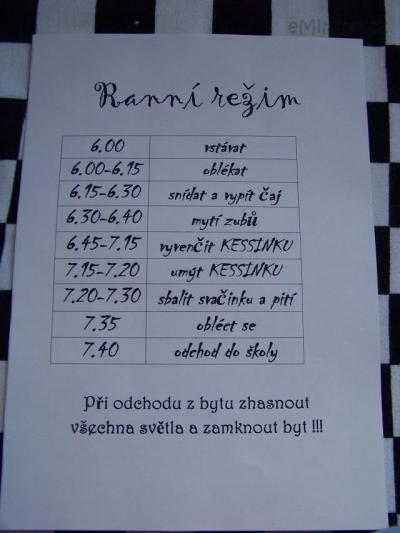 Ranní režim
6.00 vstávat
6.00-6.15 oblékat
6.15-6.30 snídat a vypít čaj
6.30-6.40 mytí zubů
6.45-7.15 vyvenčit KESSINKU
7.15-7.20 umýt KESSINKU
7.20-7.30 sbalit svačinku a pití
7.35 obléct se
7.40 odchod do školy
Při odchodu z bytu zhasnout
všechna světla a zamknout byt !!!